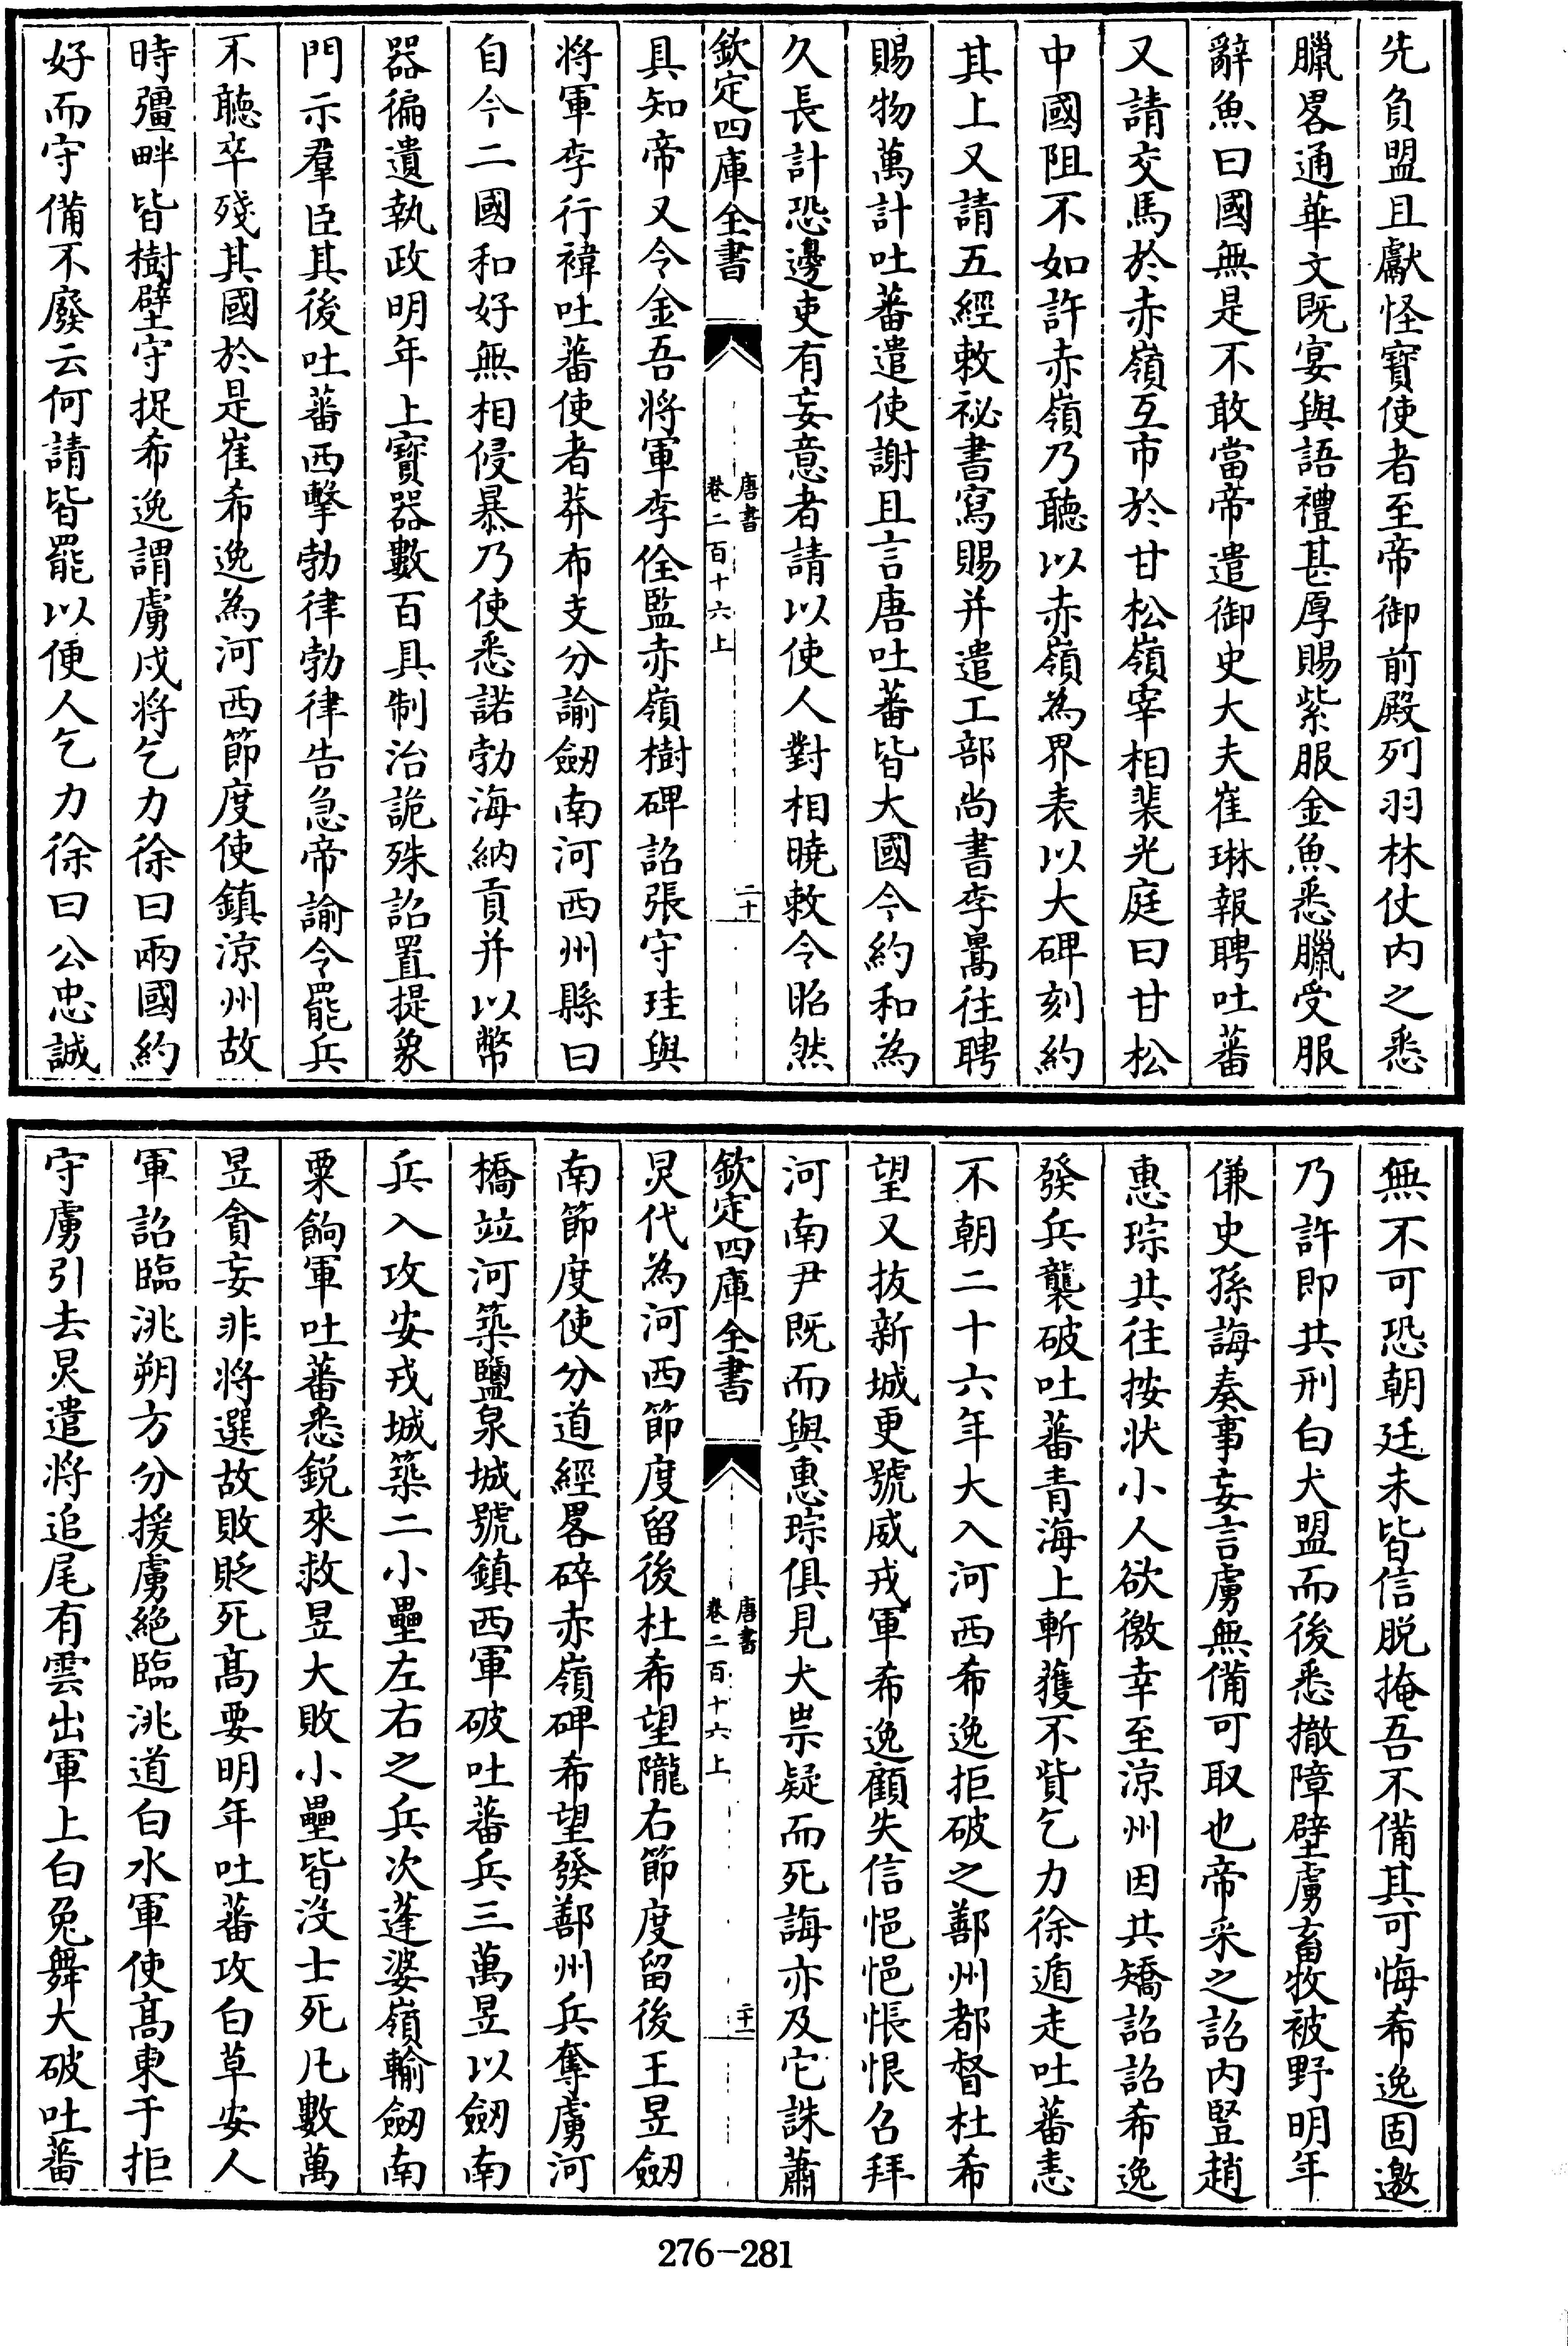 先負盟且獻怪寶使者至帝御前殿列羽林仗内之悉
臘畧通華文既宴與語禮甚厚賜紫服金魚悉臘受服
辭魚曰國無是不敢當帝遣御史大夫崔琳報聘吐蕃
又請交馬於赤嶺互市於甘松嶺宰相裴光庭曰甘松
中國阻不如許赤嶺乃聽以赤嶺為界表以大碑刻約
其上又請五經敕祕書寫賜并遣工部尚書李暠往聘
賜物萬計吐蕃遣使謝且言唐吐蕃皆大國今約和為
久長計恐邊吏有妄意者請以使人對相曉敕令昭然
欽定四庫全書
唐書
卷二百十六上
二十
具知帝又令金吾將軍李佺監赤嶺樹碑詔張守珪與
將軍李行褘吐蕃使者莽布支分諭劒南河西州縣曰
自今二國和好無相侵暴乃使悉諾勃海納貢并以幣
器徧遺執政明年上寶器數百具制治詭殊詔置提象
門示羣臣其後吐蕃西擊勃律勃律告急帝諭令罷兵
不聽卒殘其國於是崔希逸為河西節度使鎮涼州故
時彊畔皆樹壁守捉希逸謂虜戍將乞力徐曰兩國約
好而守備不廢云何請皆罷以便人乞力徐曰公忠誠
無不可恐朝廷未皆信脱掩吾不備其可悔希逸固邀
乃許即共刑白犬盟而後悉撤障壁虜畜牧被野明年
傔史孫誨奏事妄言虜無備可取也帝采之詔内豎趙
惠琮共往按状小人欲徼幸至涼州因共矯詔詔希逸
發兵襲破吐蕃青海上斬獲不貲乞力徐遁走吐蕃恚
不朝二十六年大入河西希逸拒破之鄯州都督杜希
望又拔新城更號威戎軍希逸顧失信悒悒悵恨召拜
河南尹既而與惠琮俱見犬祟疑而死誨亦及它誅蕭
欽定四庫全書
唐書
卷二百十六上
二十一
炅代為河西節度留後杜希望隴右節度留後王昱劒
南節度使分道經畧碎赤嶺碑希望發鄯州兵奪虜河
橋竝河築鹽泉城號鎮西軍破吐蕃兵三萬昱以劒南
兵入攻安戎城築二小壘左右之兵次蓬婆嶺輸劒南
粟餉軍吐蕃悉鋭來救昱大敗小壘皆没士死凡數萬
昱貪妄非將選故敗貶死髙要明年吐蕃攻白草安人
軍詔臨洮朔方分援虜絶臨洮道白水軍使髙柬于拒
守虜引去炅遣將追尾有雲出軍上白兔舞大破吐蕃
276-281